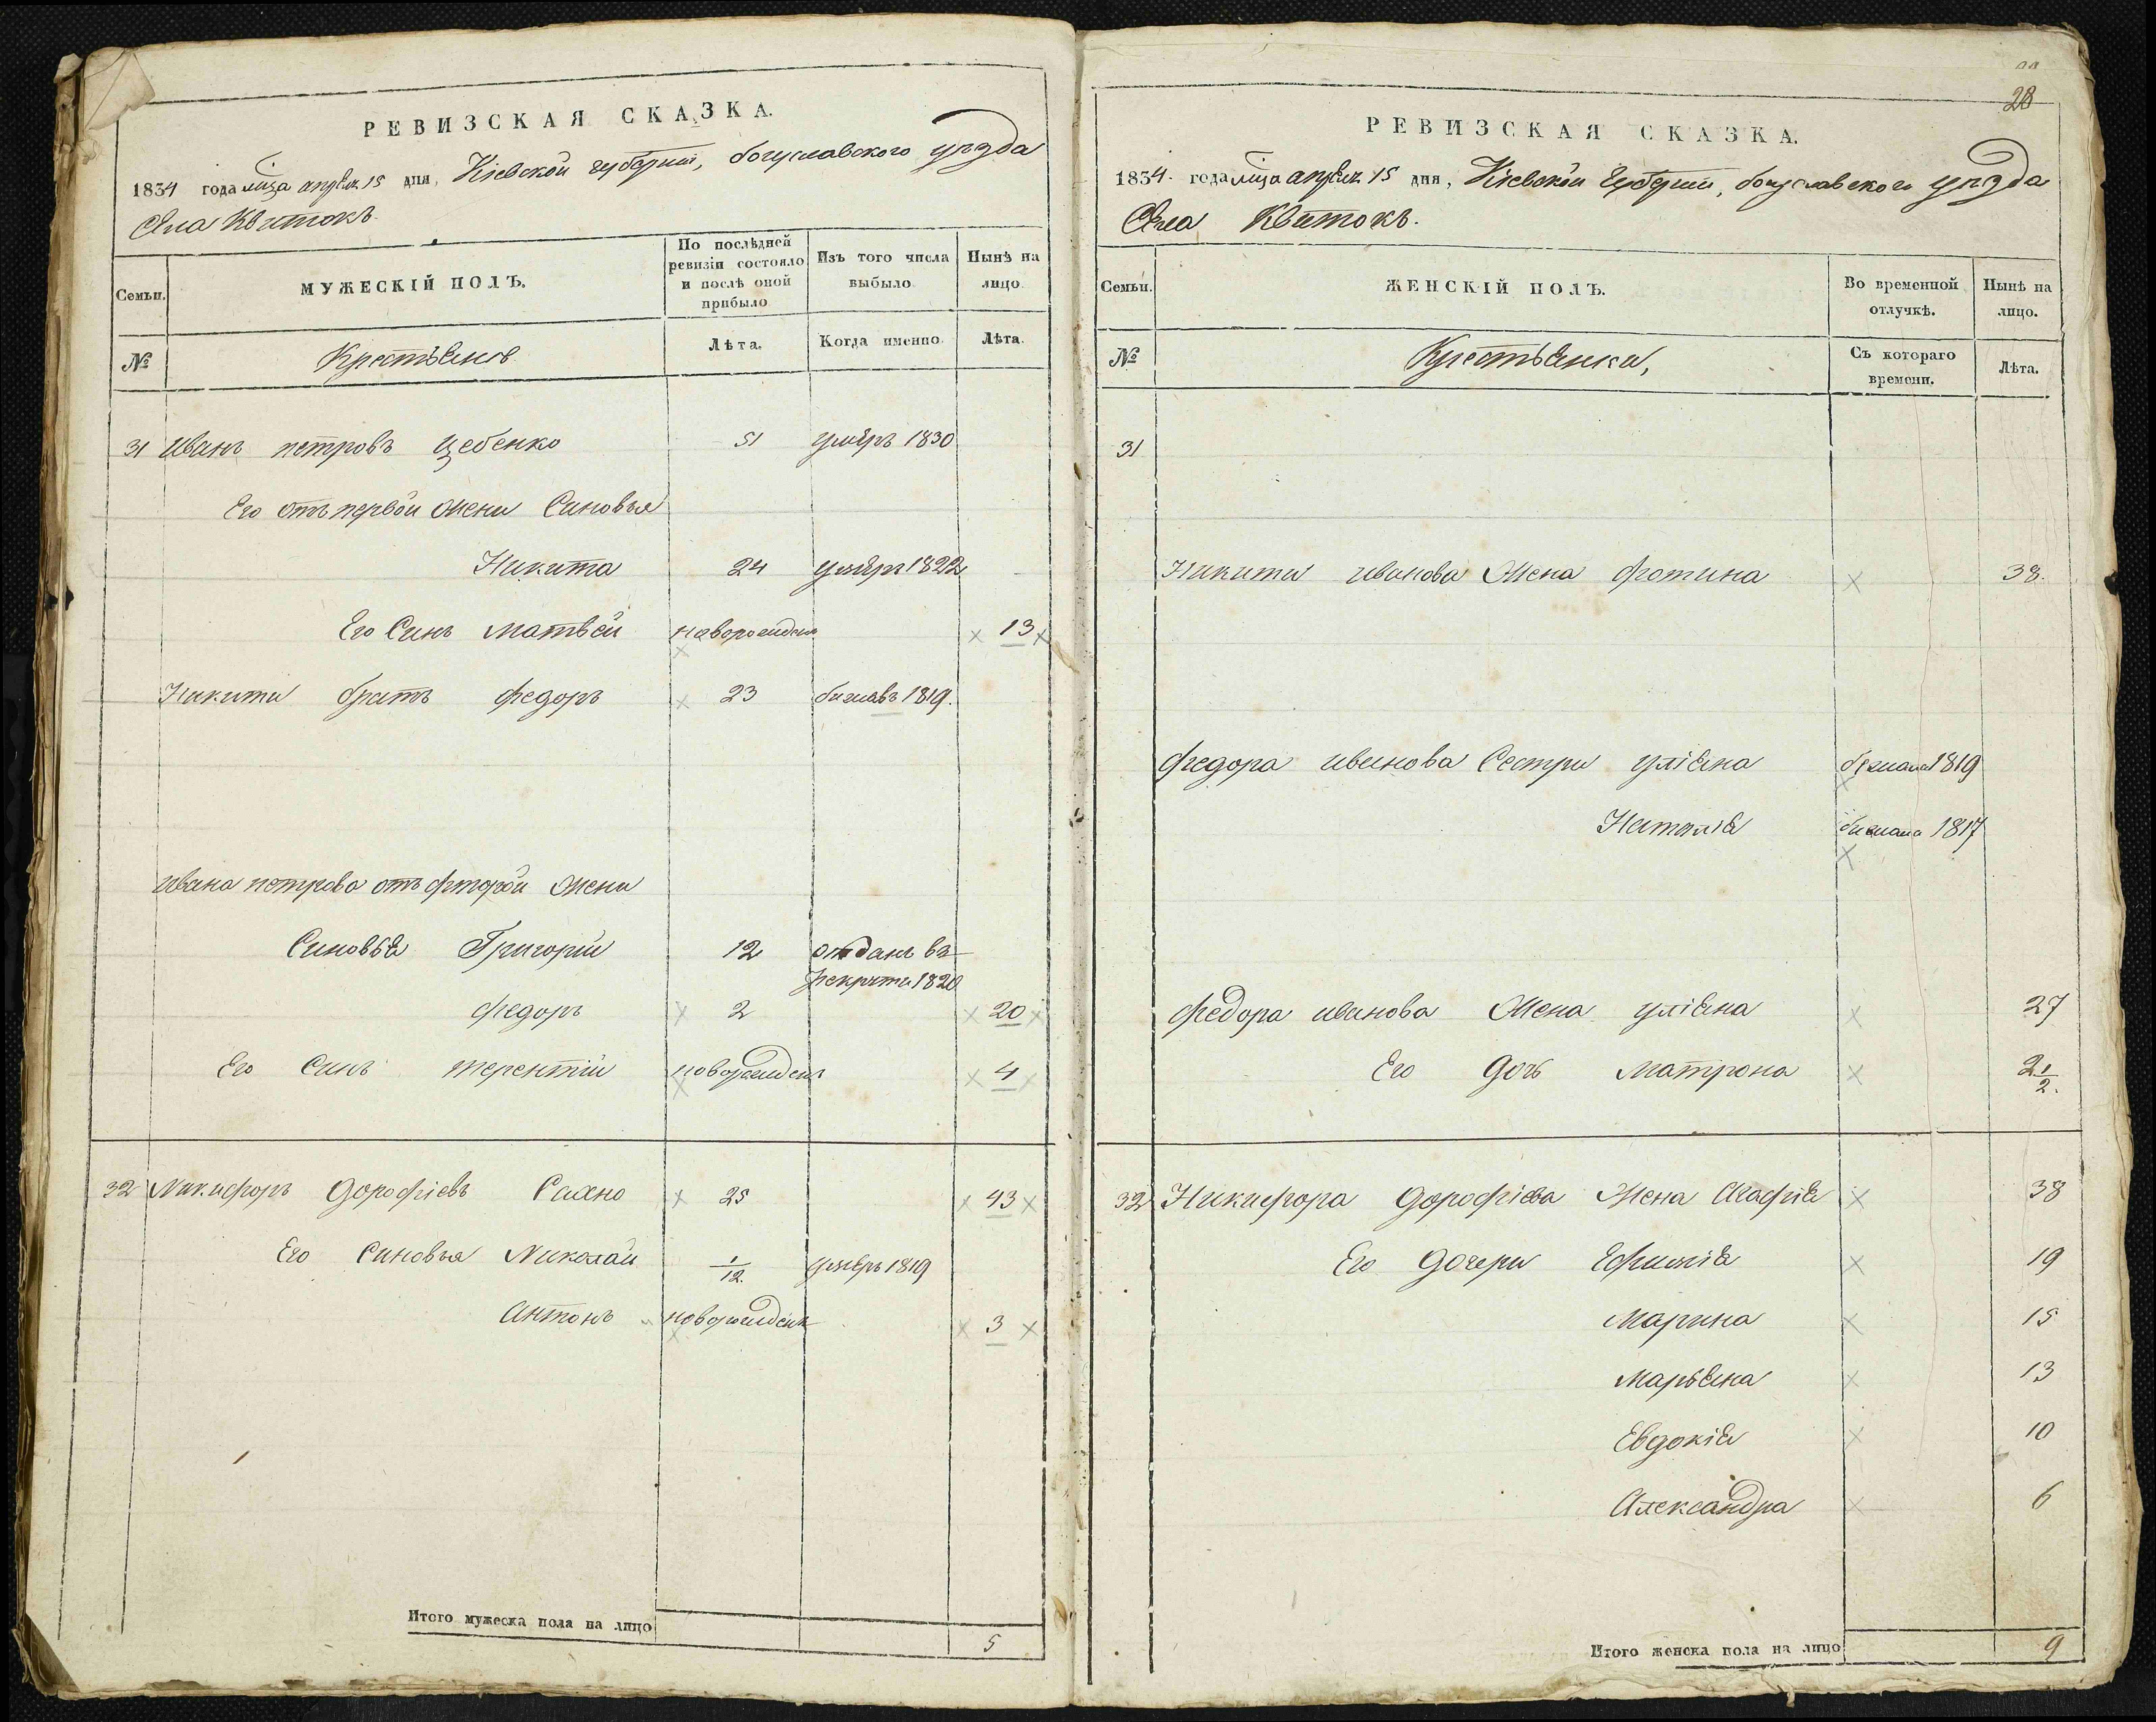 РЕВИЗСКАЯ СКАЗКА.
1834 года мца апреля 15 дня, Кіевской губерніи, богуславского уезда
Села Квитокъ
Семьи.
МУЖЕСКІЙ ПОЛЪ.
По послѣдней ревизіи состояло и послѣ оной прибыло
Изъ того числа выбыло
Ныпѣ на лицо
№
Крестьяне
Лѣта.
Когда именно
Лѣта.
31 Иванъ петровъ цебенко 51 умѣръ 1830
Его отъ первой жени Синовья
Никита 24 умѣръ 1822
Его Синъ матвѣй новорожденъ 13
Никити братъ федоръ 23 бижавъ 1819.
ивана петрова отъ фторой жени
Синовья Григорій 12 отданъ въ
рекрути 1820
федоръ 2 20
Его Синъ терентій новорожденъ 4
32 Никифоръ дорофіевъ Сахно 25 43
Его Синовья Николай 1/12. умѣръ 1819
Антонъ новорожденъ 3
Итого мужеска пола на лицо 5
28
РЕВИЗСКАЯ СКАЗКА.
1834. года мца апреля 15 дня, Кіевской Губерніи, богуславского уезда
Села Квитокъ.
Семьи.
ЖЕНСКІЙ ПОЛЪ.
Во временной отлучкѣ.
Нынѣ на лицо.
№
Крестьянки,
Съ котораго времени.
Лѣта.
31
Никити иванова жена фотина 38.
федора иванова Сестри уліяна бижала 1819
Наталія бижала 1817
федора иванова жена уліяна 27
Его дочь матрона 2 1/2.
32 Никифора дорофіева жена Агафія 38
Его дочери Ефимія 19
марина 15
марьяна 13
Евдокія 10
Александра 6
Итого женска пола на лицо 9